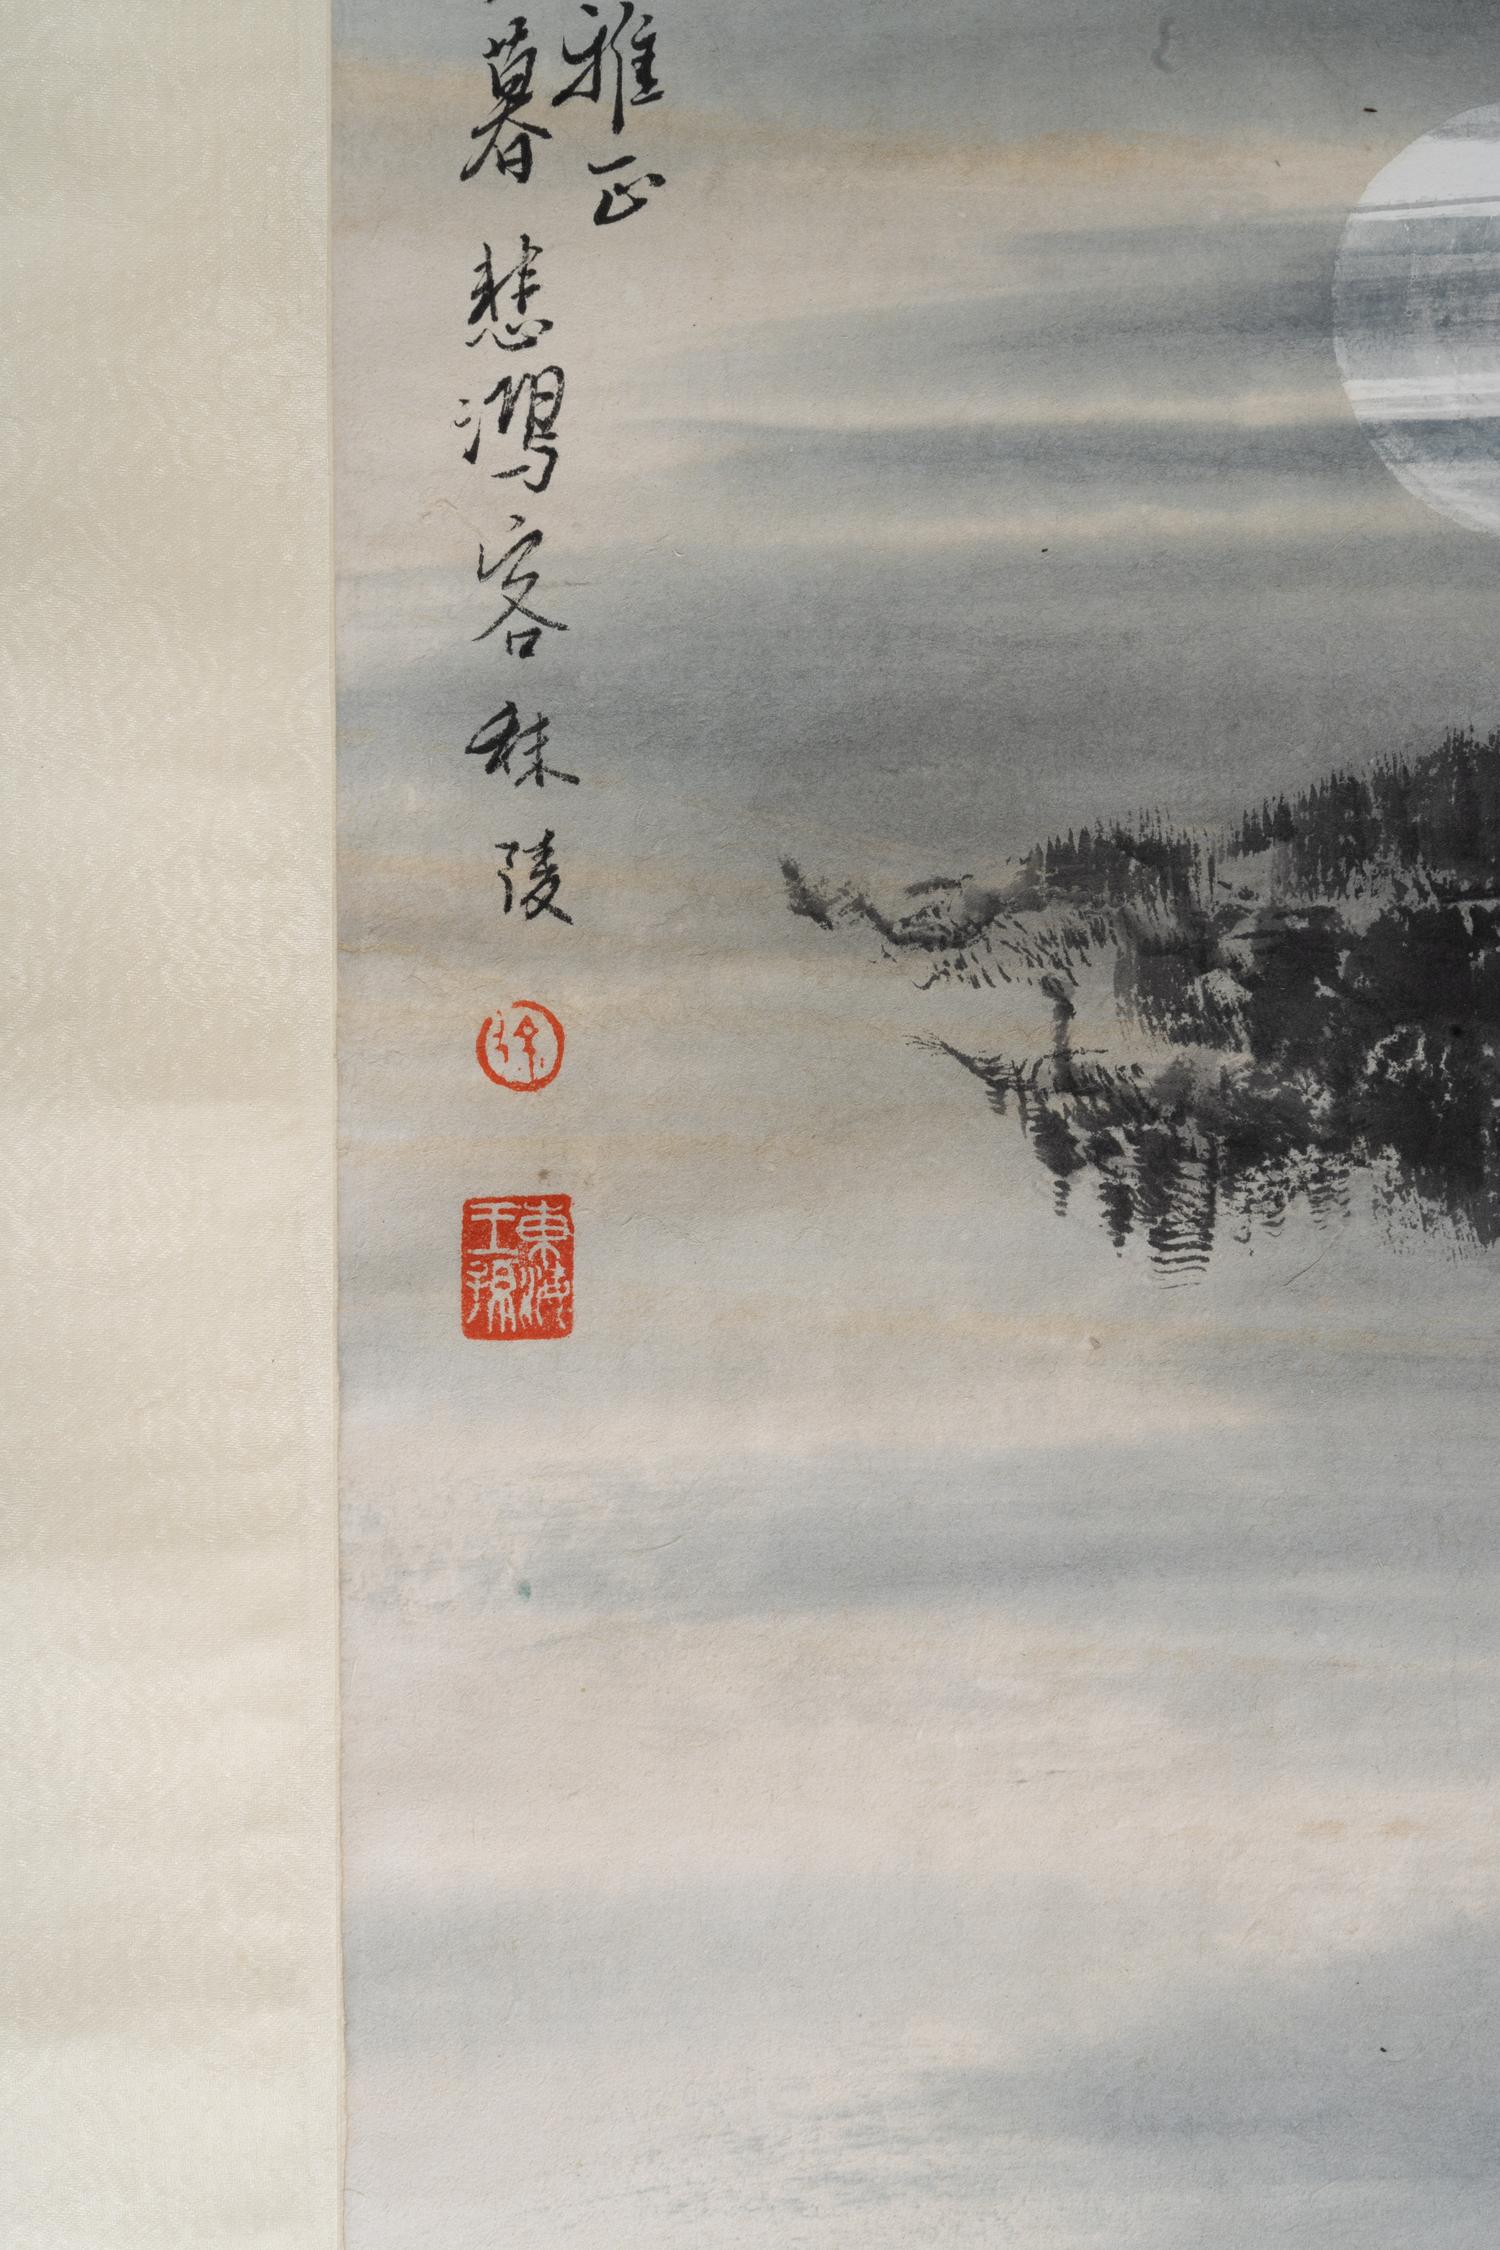 雅正
暮春悲鴻客秣陵
徐
東海
王孫